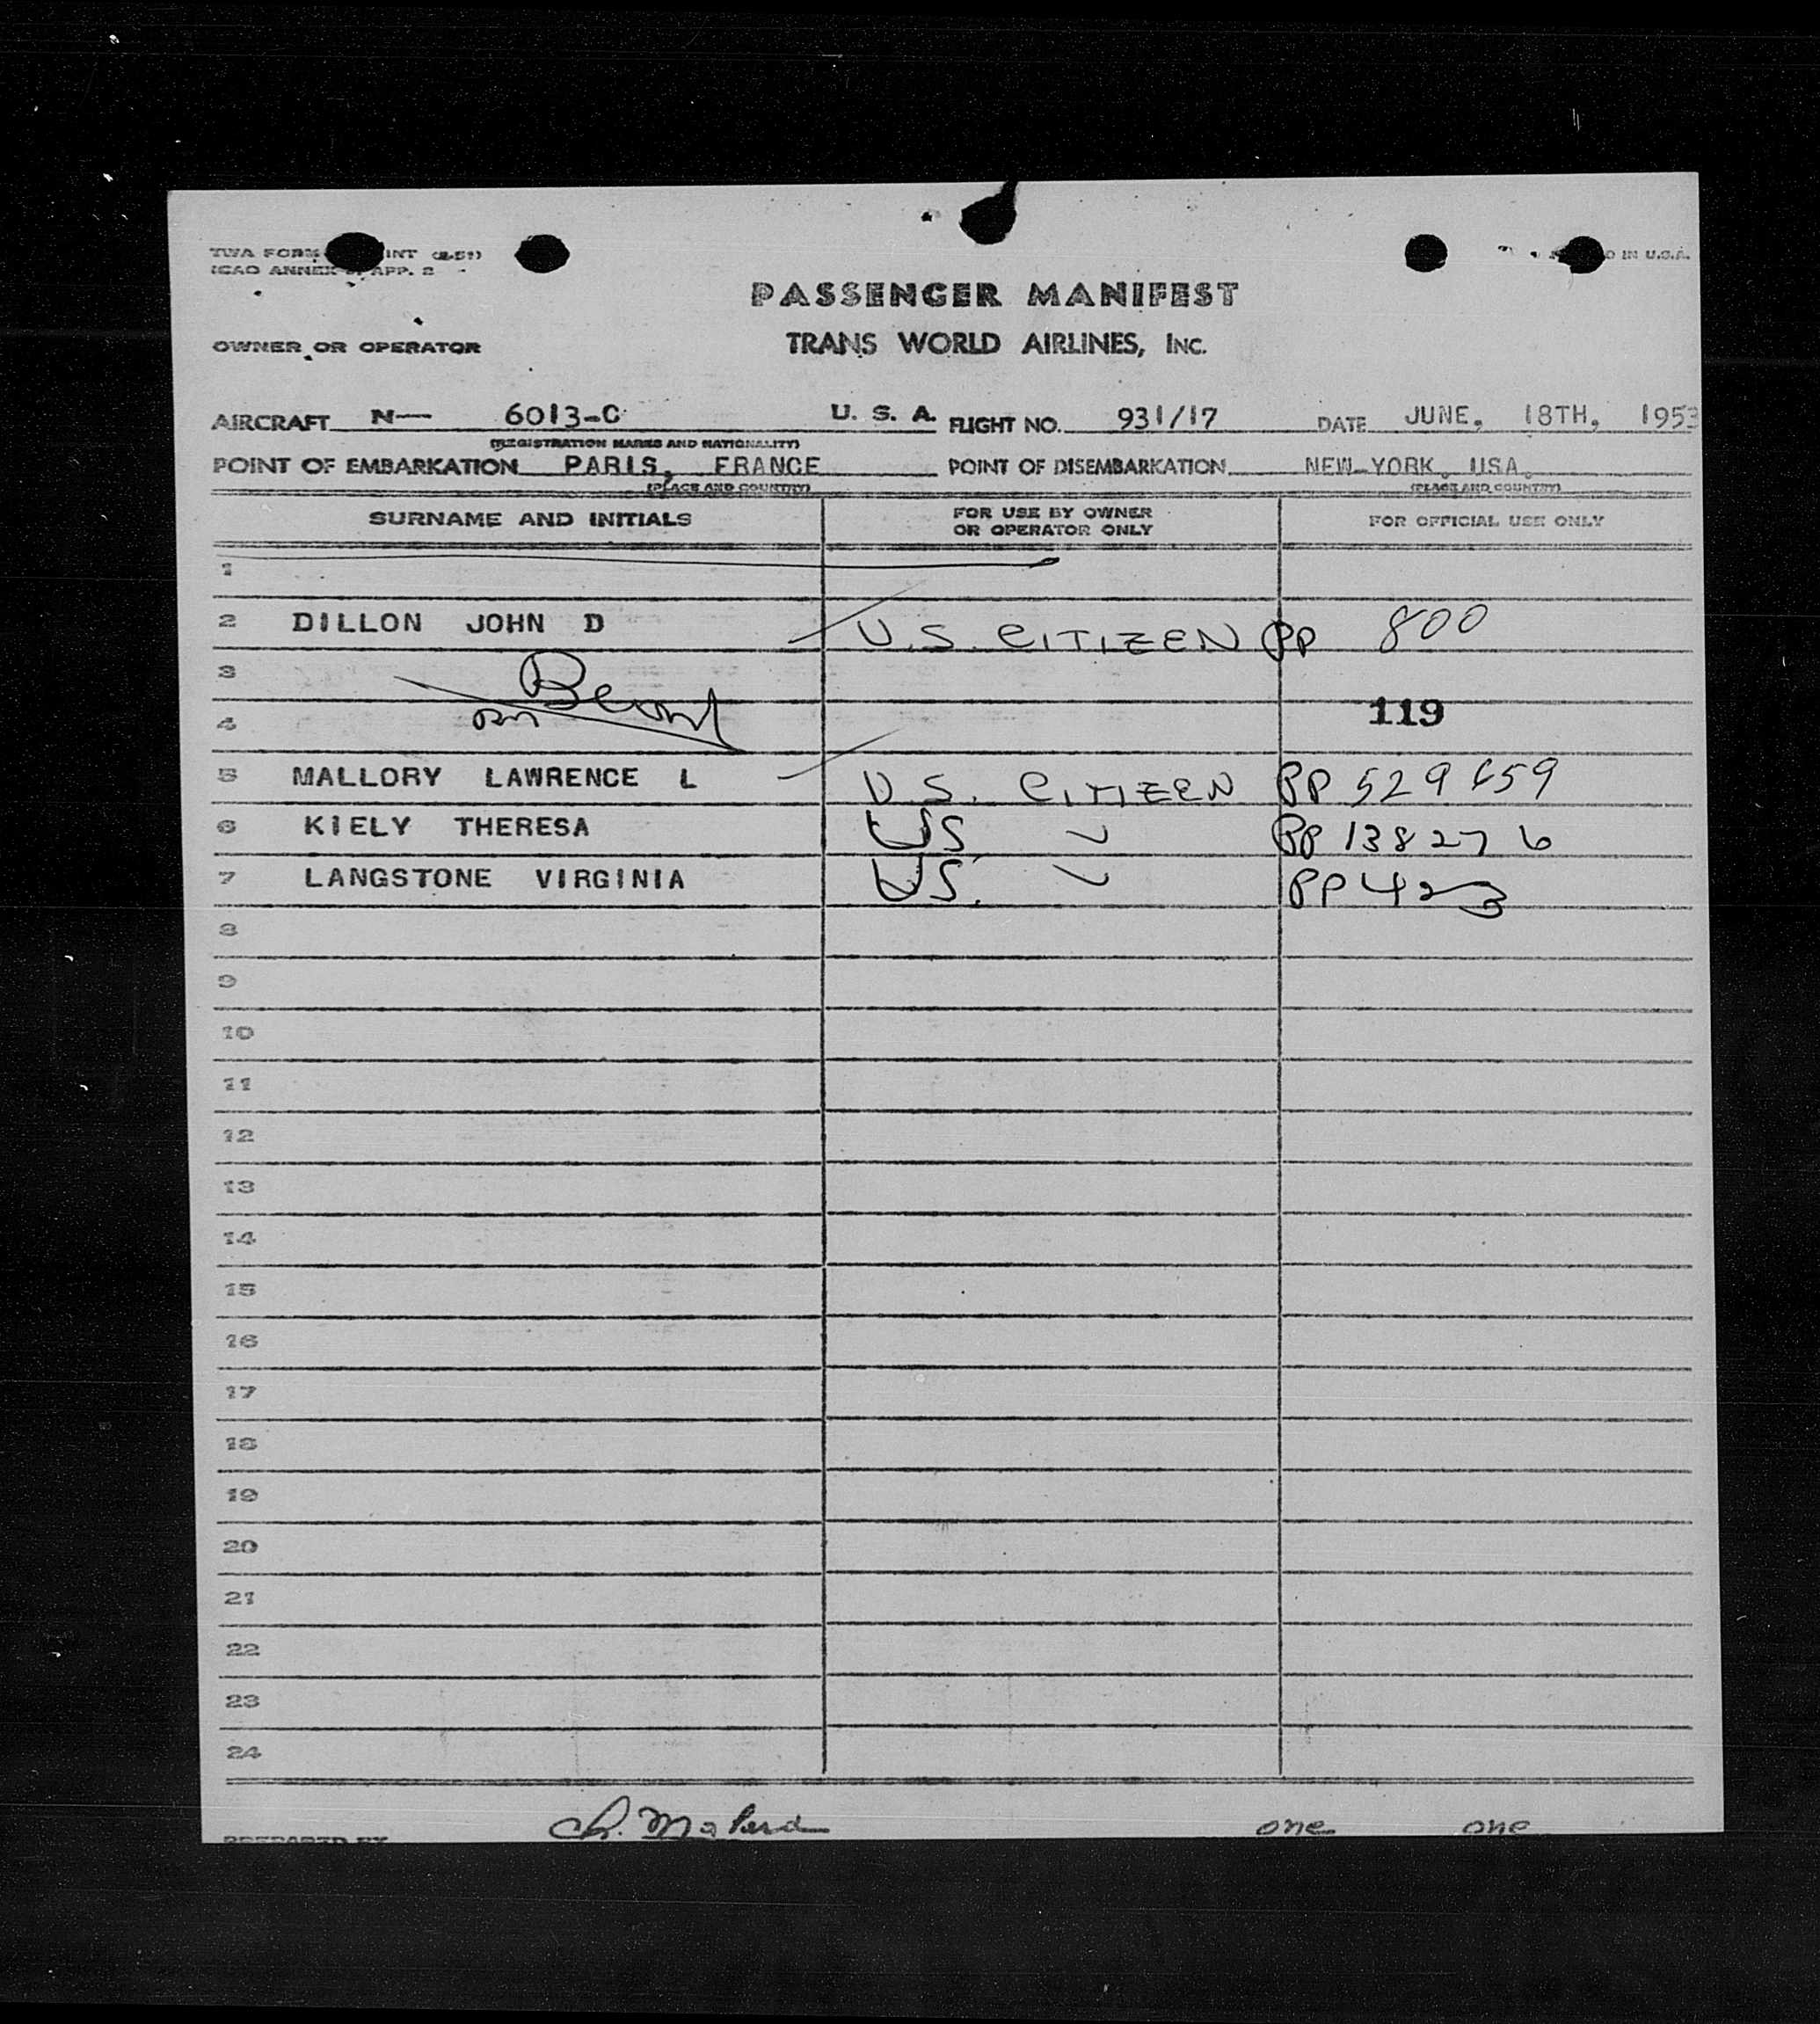 TWA FORM INT (2-51)
ICAO ANNEX APP. 2
D IN U.S.A.
PASSENGER MANIFEST
OWNER OR OPERATOR TRANS WORLD AIRLINES, INC.
AIRCRAFT N— 6013-C U. S. A. FLIGHT NO. 931/17 DATE JUNE, 18TH, 1953
(REGISTRATION MARKS AND NATIONALITY)
POINT OF EMBARKATION PARIS, FRANCE POINT OF DISEMBARKATION NEW-YORK, USA.
(PLACE AND COUNTRY) (PLACE AND COUNTRY)
SURNAME AND INITIALS FOR USE BY OWNER OR OPERATOR ONLY FOR OFFICIAL USE ONLY
1
2 DILLON JOHN D U.S. CITIZEN PP 800
3
4 119
5 MALLORY LAWRENCE L U.S. CITIZEN PP 529659
6 KIELY THERESA US PP 138276
7 LANGSTONE VIRGINIA US. PP 423
8
9
10
11
12
13
14
15
16
17
18
19
20
21
22
23
24
PREPARED BY one one